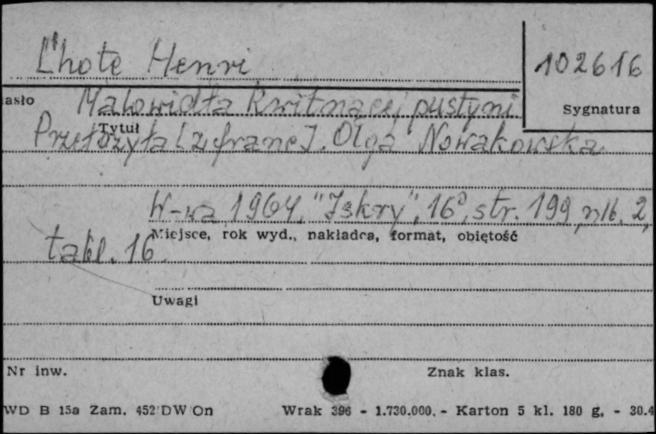 L'hote Henri
102616
asło
Malowidła kwitnącej pustyni
Sygnatura
Tytuł
Przełożyła [z franc]. Olga Nowakowska
W-wa 1964, "Iskry", 16°, str. 199, nlb. 2,
Miejsce, rok wyd., nakładca, format, objętość
tabl. 16
Uwagi
Nr inw.
Znak klas.
WD B 15a Zam. 452 DW On Wrak 396 - 1.730.000. - Karton 5 kl. 180 g. - 30.4